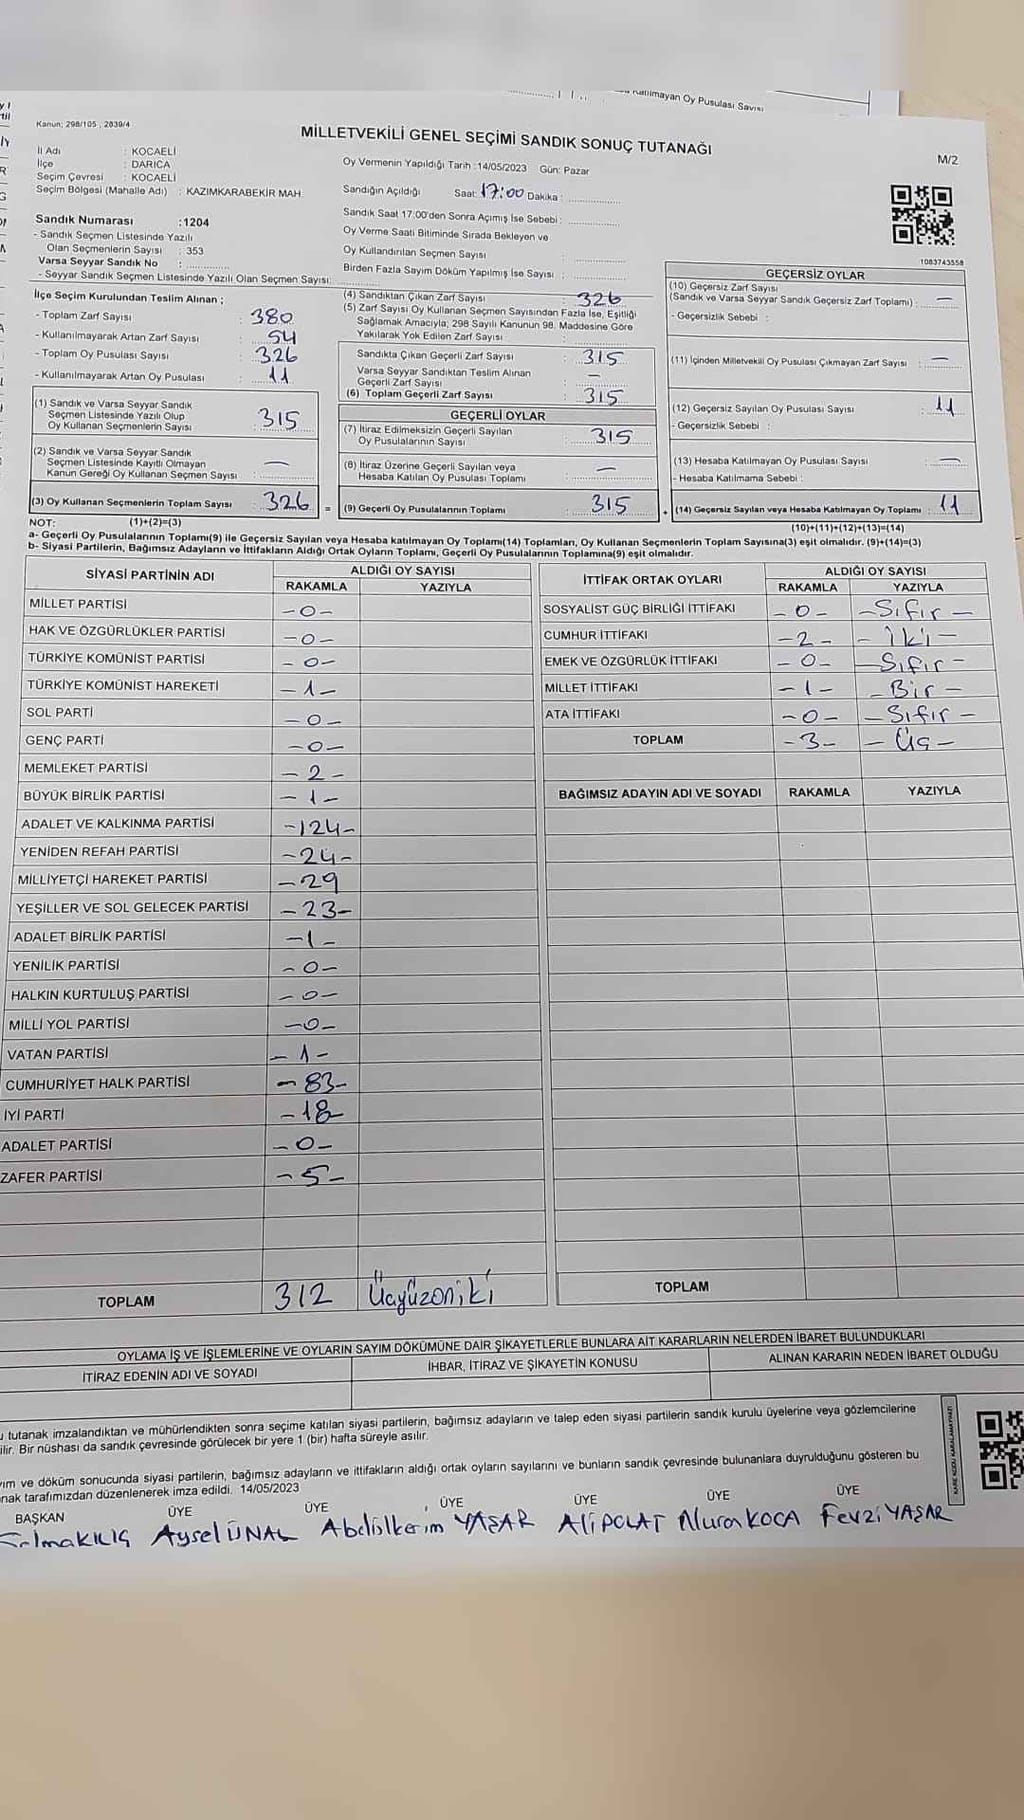 Katılmayan Oy Pusulası Sayısı
Kanun; 298/105 , 2839/4
MİLLETVEKİLİ GENEL SEÇİMİ SANDIK SONUÇ TUTANAĞI
M/2
İl Adı : KOCAELİ
İlçe : DARICA
Seçim Çevresi : KOCAELİ
Seçim Bölgesi (Mahalle Adı) : KAZIMKARABEKİR MAH.
Sandık Numarası :1204
- Sandık Seçmen Listesinde Yazılı
Olan Seçmenlerin Sayısı : 353
Varsa Seyyar Sandık No : ..............
- Seyyar Sandık Seçmen Listesinde Yazılı Olan Seçmen Sayısı: ..............
Oy Vermenin Yapıldığı Tarih :14/05/2023 Gün: Pazar
Sandığın Açıldığı Saat: 17:00 Dakika : ..............
Sandık Saat 17:00'den Sonra Açımış İse Sebebi : ..............
Oy Verme Saati Bitiminde Sırada Bekleyen ve
Oy Kullandırılan Seçmen Sayısı : ..............
Birden Fazla Sayım Döküm Yapılmış İse Sayısı : ..............
1083743558
İlçe Seçim Kurulundan Teslim Alınan ;
- Toplam Zarf Sayısı : 380
- Kullanılmayarak Artan Zarf Sayısı : 54
- Toplam Oy Pusulası Sayısı : 326
- Kullanılmayarak Artan Oy Pusulası : 11
(1) Sandık ve Varsa Seyyar Sandık
Seçmen Listesinde Yazılı Olup
Oy Kullanan Seçmenlerin Sayısı : 315
(2) Sandık ve Varsa Seyyar Sandık
Seçmen Listesinde Kayıtlı Olmayan
Kanun Gereği Oy Kullanan Seçmen Sayısı : —
(3) Oy Kullanan Seçmenlerin Toplam Sayısı : 326 =
(1)+(2)=(3)
(4) Sandıktan Çıkan Zarf Sayısı : 326
(5) Zarf Sayısı Oy Kullanan Seçmen Sayısından Fazla İse, Eşitliği
Sağlamak Amacıyla; 298 Sayılı Kanunun 98. Maddesine Göre
Yakılarak Yok Edilen Zarf Sayısı : ..............
Sandıkta Çıkan Geçerli Zarf Sayısı : 315
Varsa Seyyar Sandıktan Teslim Alınan
Geçerli Zarf Sayısı : —
(6) Toplam Geçerli Zarf Sayısı : 315
GEÇERLİ OYLAR
(7) İtiraz Edilmeksizin Geçerli Sayılan
Oy Pusulalarının Sayısı : 315
(8) İtiraz Üzerine Geçerli Sayılan veya
Hesaba Katılan Oy Pusulası Toplamı : —
(9) Geçerli Oy Pusulalarının Toplamı : 315 +
GEÇERSİZ OYLAR
(10) Geçersiz Zarf Sayısı
(Sandık ve Varsa Seyyar Sandık Geçersiz Zarf Toplamı) : —
- Geçersizlik Sebebi :
(11) İçinden Milletvekili Oy Pusulası Çıkmayan Zarf Sayısı : —
(12) Geçersiz Sayılan Oy Pusulası Sayısı : 11
- Geçersizlik Sebebi :
(13) Hesaba Katılmayan Oy Pusulası Sayısı : —
- Hesaba Katılmama Sebebi :
(14) Geçersiz Sayılan veya Hesaba Katılmayan Oy Toplamı : 11
(10)+(11)+(12)+(13)=(14)
NOT:
a- Geçerli Oy Pusulalarının Toplamı(9) ile Geçersiz Sayılan veya Hesaba katılmayan Oy Toplamı(14) Toplamları, Oy Kullanan Seçmenlerin Toplam Sayısına(3) eşit olmalıdır. (9)+(14)=(3)
b- Siyasi Partilerin, Bağımsız Adayların ve İttifakların Aldığı Ortak Oyların Toplamı, Geçerli Oy Pusulalarının Toplamına(9) eşit olmalıdır.
SİYASİ PARTİNİN ADI ALDIĞI OY SAYISI
RAKAMLA YAZIYLA
MİLLET PARTİSİ -0-
HAK VE ÖZGÜRLÜKLER PARTİSİ -0-
TÜRKİYE KOMÜNİST PARTİSİ -0-
TÜRKİYE KOMÜNİST HAREKETİ -1-
SOL PARTİ -0-
GENÇ PARTİ -0-
MEMLEKET PARTİSİ -2-
BÜYÜK BİRLİK PARTİSİ -1-
ADALET VE KALKINMA PARTİSİ -124-
YENİDEN REFAH PARTİSİ -24-
MİLLİYETÇİ HAREKET PARTİSİ -29
YEŞİLLER VE SOL GELECEK PARTİSİ -23-
ADALET BİRLİK PARTİSİ -1-
YENİLİK PARTİSİ -0-
HALKIN KURTULUŞ PARTİSİ -0-
MİLLİ YOL PARTİSİ -0-
VATAN PARTİSİ -1-
CUMHURİYET HALK PARTİSİ -83-
İYİ PARTİ -18-
ADALET PARTİSİ -0-
ZAFER PARTİSİ -5-
TOPLAM 312 Üçyüzoniki
İTTİFAK ORTAK OYLARI ALDIĞI OY SAYISI
RAKAMLA YAZIYLA
SOSYALİST GÜÇ BİRLİĞİ İTTİFAKI -0- -Sıfır-
CUMHUR İTTİFAKI -2- -İki-
EMEK VE ÖZGÜRLÜK İTTİFAKI -0- -Sıfır-
MİLLET İTTİFAKI -1- -Bir-
ATA İTTİFAKI -0- -Sıfır-
TOPLAM -3- -Üç-
BAĞIMSIZ ADAYIN ADI VE SOYADI RAKAMLA YAZIYLA
TOPLAM
OYLAMA İŞ VE İŞLEMLERİNE VE OYLARIN SAYIM DÖKÜMÜNE DAİR ŞİKAYETLERLE BUNLARA AİT KARARLARIN NELERDEN İBARET BULUNDUKLARI
İTİRAZ EDENİN ADI VE SOYADI İHBAR, İTİRAZ VE ŞİKAYETİN KONUSU ALINAN KARARIN NEDEN İBARET OLDUĞU
tutanak imzalandıktan ve mühürlendikten sonra seçime katılan siyasi partilerin, bağımsız adayların ve talep eden siyasi partilerin sandık kurulu üyelerine veya gözlemcilerine
ilir. Bir nüshası da sandık çevresinde görülecek bir yere 1 (bir) hafta süreyle asılır.
yım ve döküm sonucunda siyasi partilerin, bağımsız adayların ve ittifakların aldığı ortak oyların sayılarını ve bunların sandık çevresinde bulunanlara duyrulduğunu gösteren bu
nak tarafımızdan düzenlenerek imza edildi. 14/05/2023
BAŞKAN ÜYE ÜYE ÜYE ÜYE ÜYE ÜYE
Selma KILIÇ Aysel ÜNAL Abdilkerim YAŞAR Ali POLAT Nuran KOCA Fevzi YAŞAR